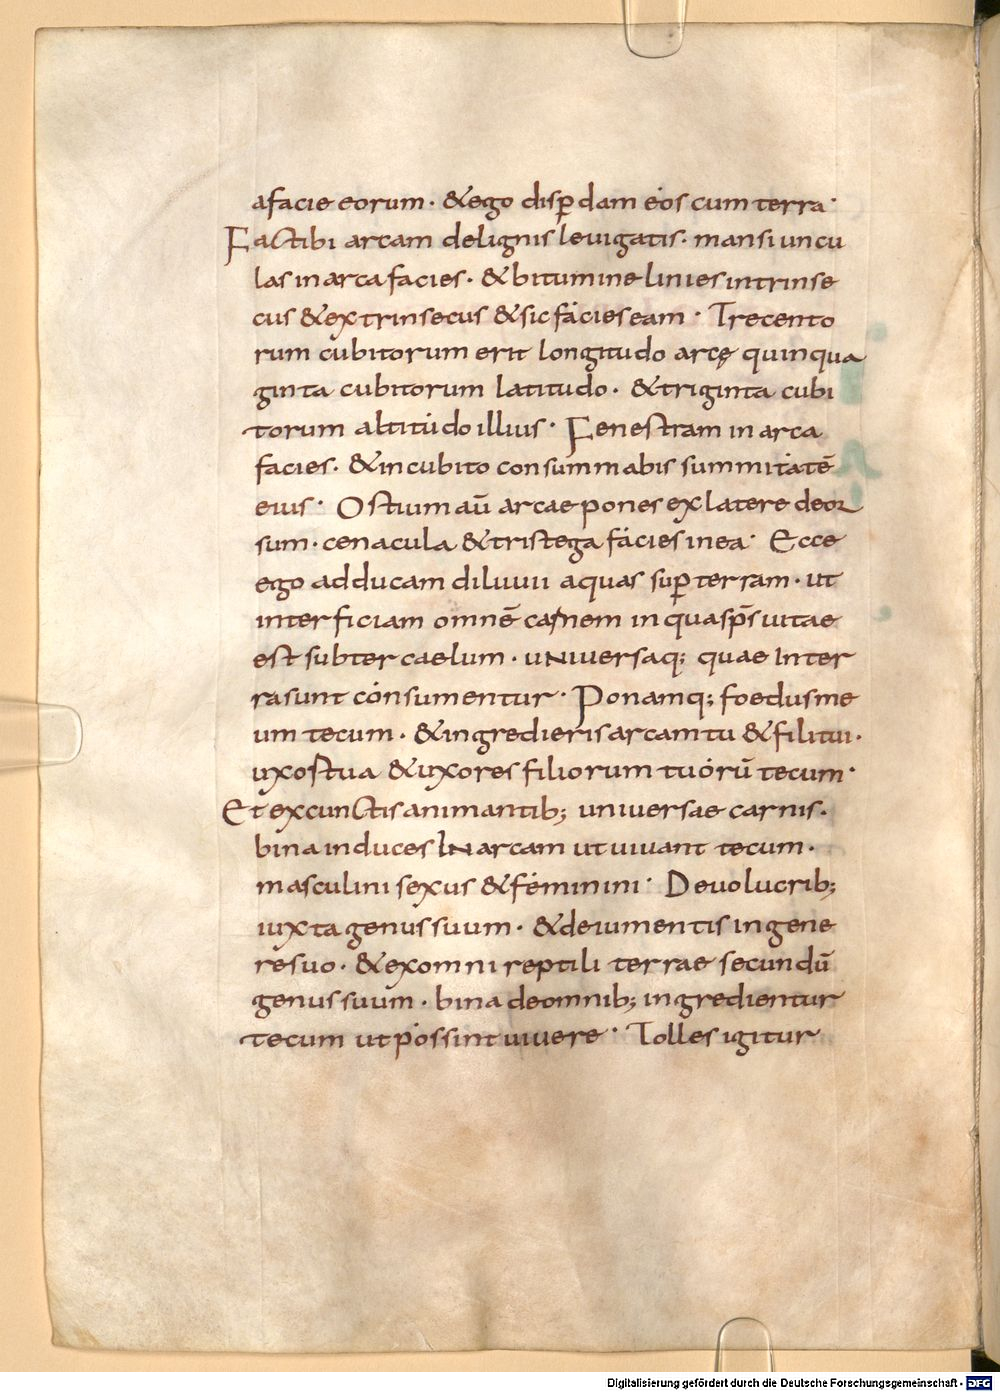 afacie eorum · & ego disp̄dam eos cum terra ·
Fac tibi arcam delignis levigatis · mansiuncu
las in arca facies · & bitumine linies intrinse
cus & extrinsecus & sic facies eam · Trecento
rum cubitorum erit longitudo arcę quinqua
ginta cubitorum latitudo · & triginta cubi
torum altitudo illius · Fenestram in arca
facies · & in cubito consummabis summitatē
eius · Ostium aū arcae pones ex latere deor
sum · cenacula & tristega facies in ea · Ecce
ego adducam diluuii aquas sup̄ terram · ut
interficiam omnē carnem in qua sp̄s uitae
est subter caelum · uNiuersaq; quae In ter
ra sunt consumentur · Ponamq; foedus me
um tecum · & ingredieris arcam tu & filii tui ·
uxos tua & uxores filiorum tuorū tecum ·
Et ex cunctis animantib; universae carnis ·
bina induces IN arcam ut uiuant tecum ·
masculini sexus & feminini · De uolucrib;
iuxta genus suum · & de iumentis in gene
re suo · & ex omni reptili terrae secundū
genus suum · bina de omnib; ingredientur
tecum ut possint uiuere · Tolles igitur
Digitalisierung gefördert durch die Deutsche Forschungsgemeinschaft - DFG